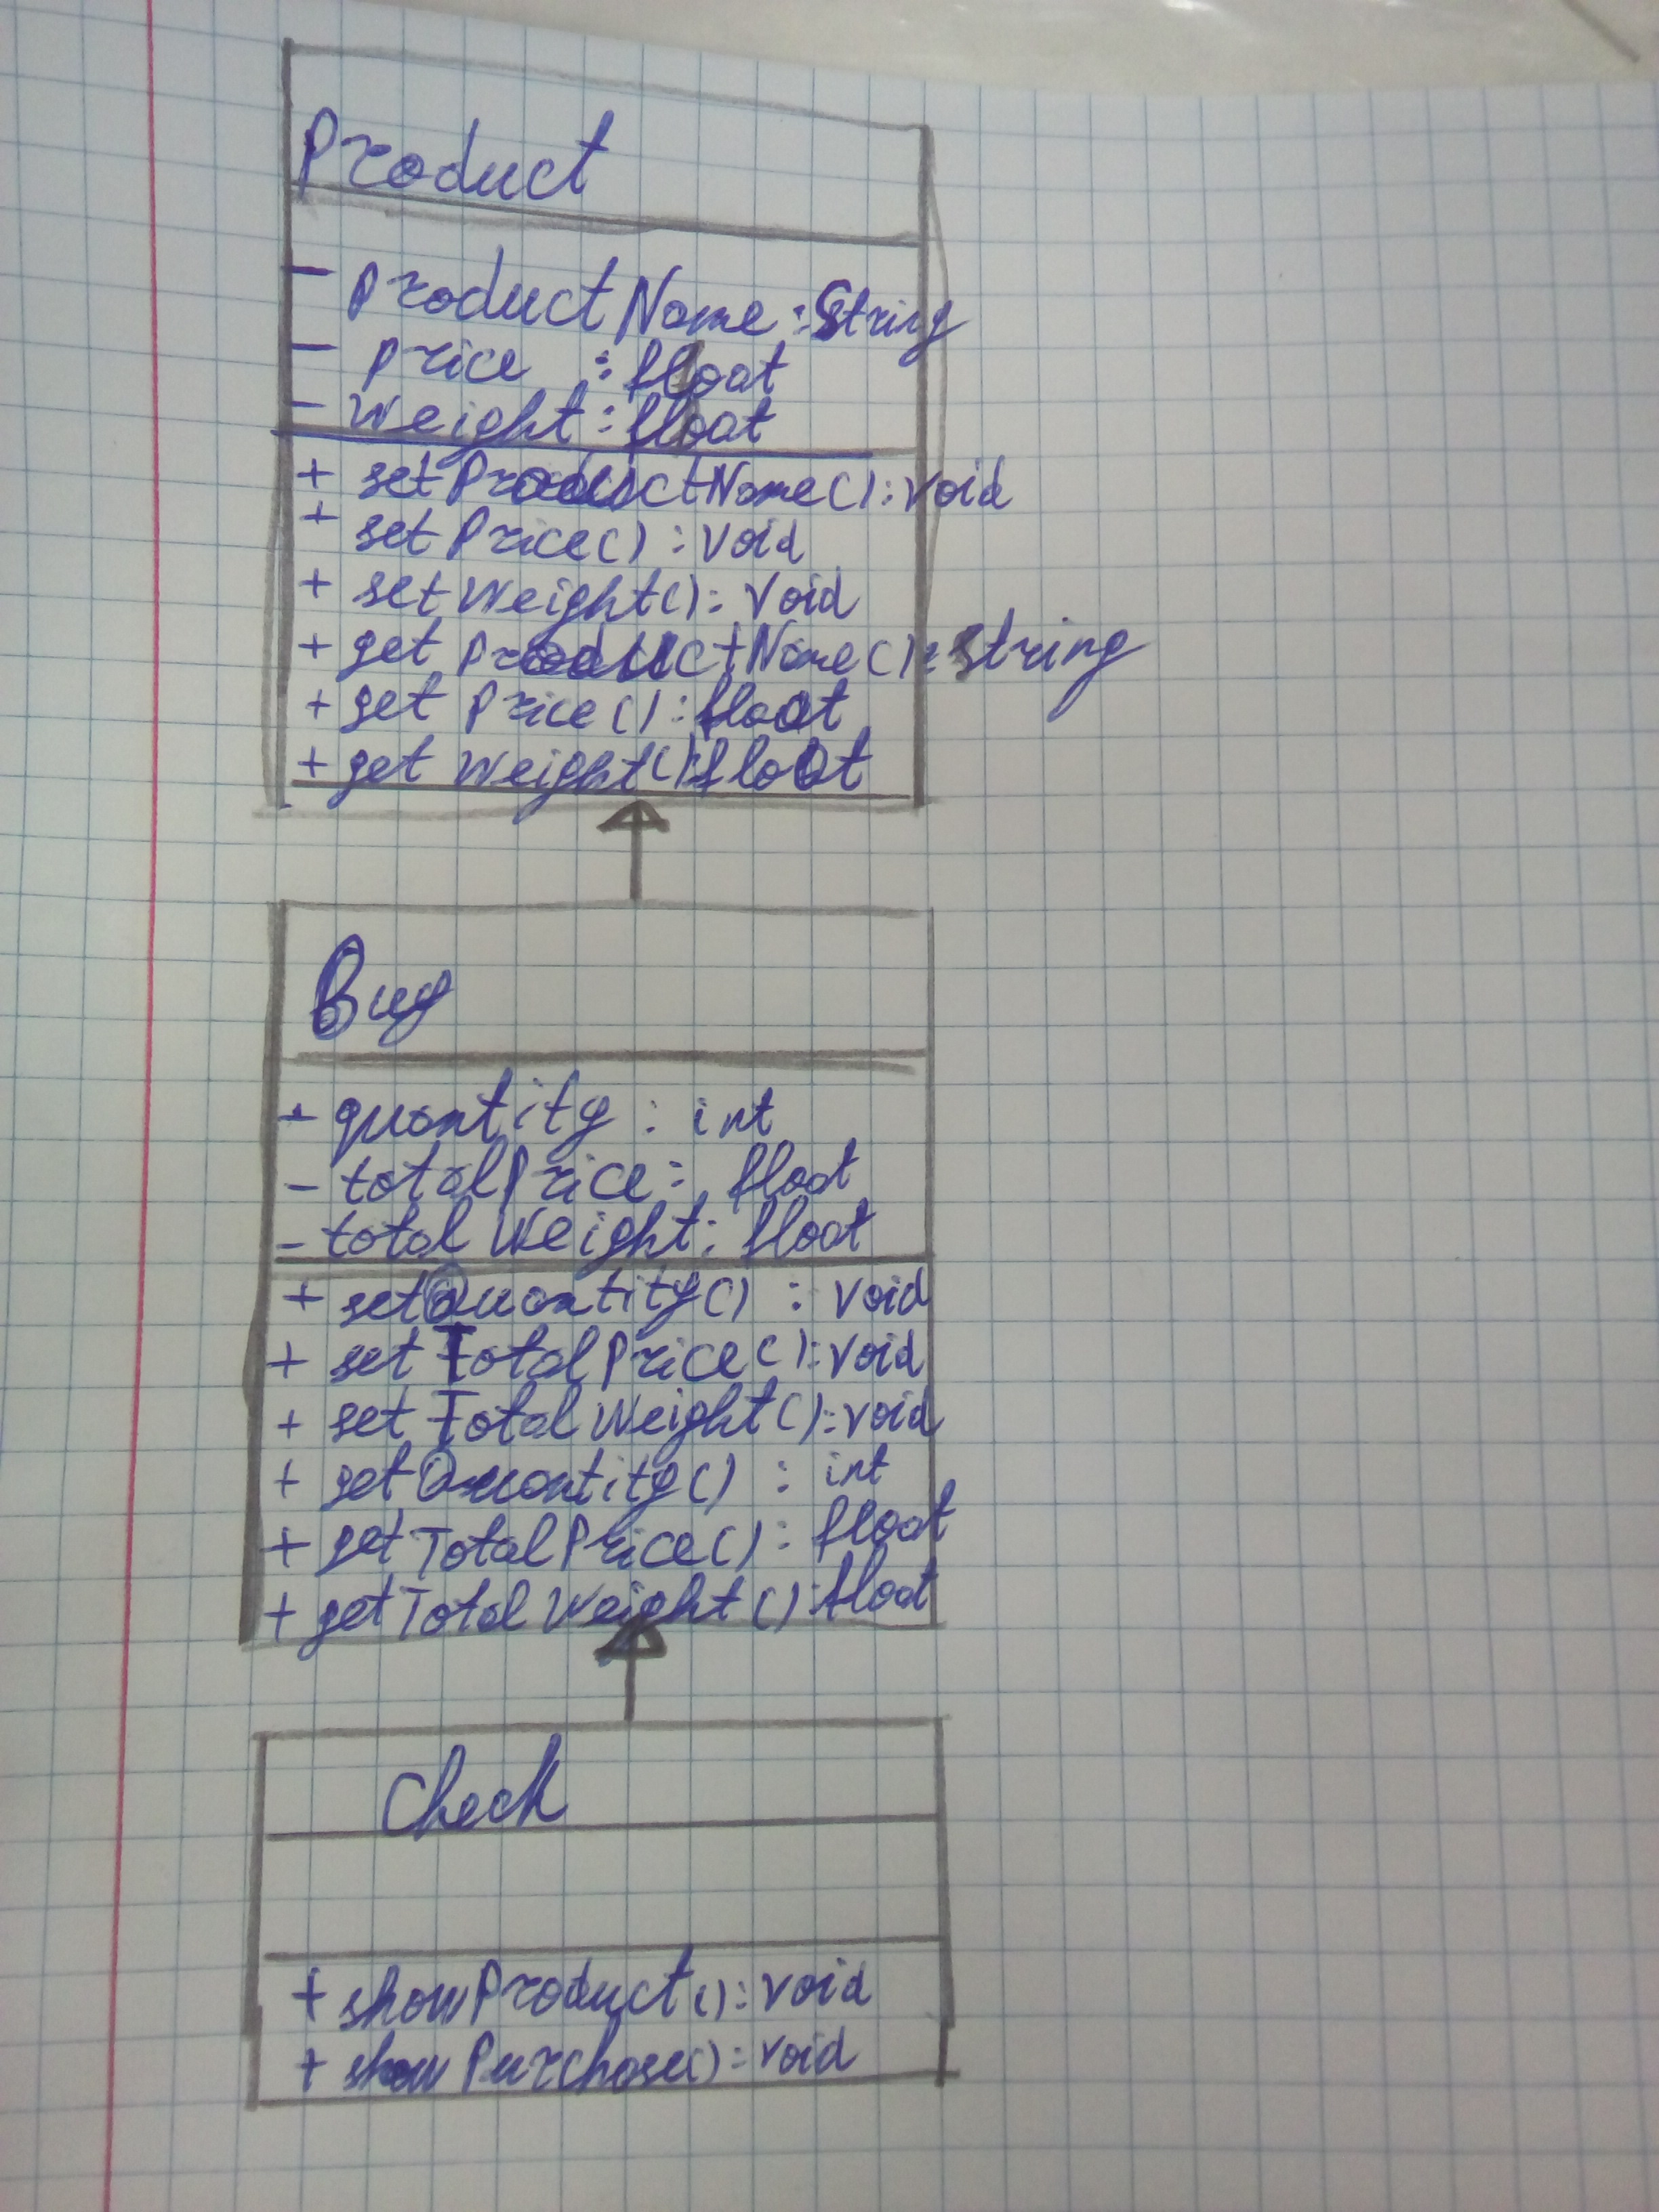 Product
- productName : String
- price : float
- weight : float
+ setProductName() : void
+ setPrice() : void
+ setWeight() : void
+ getProductName() : String
+ getPrice() : float
+ getWeight() : float
Buy
- quantity : int
- totalPrice : float
- totalWeight : float
+ setQuantity() : void
+ setTotalPrice() : void
+ setTotalWeight() : void
+ getQuantity() : int
+ getTotalPrice() : float
+ getTotalWeight() : float
Check
+ showProduct() : void
+ showPurchase() : void